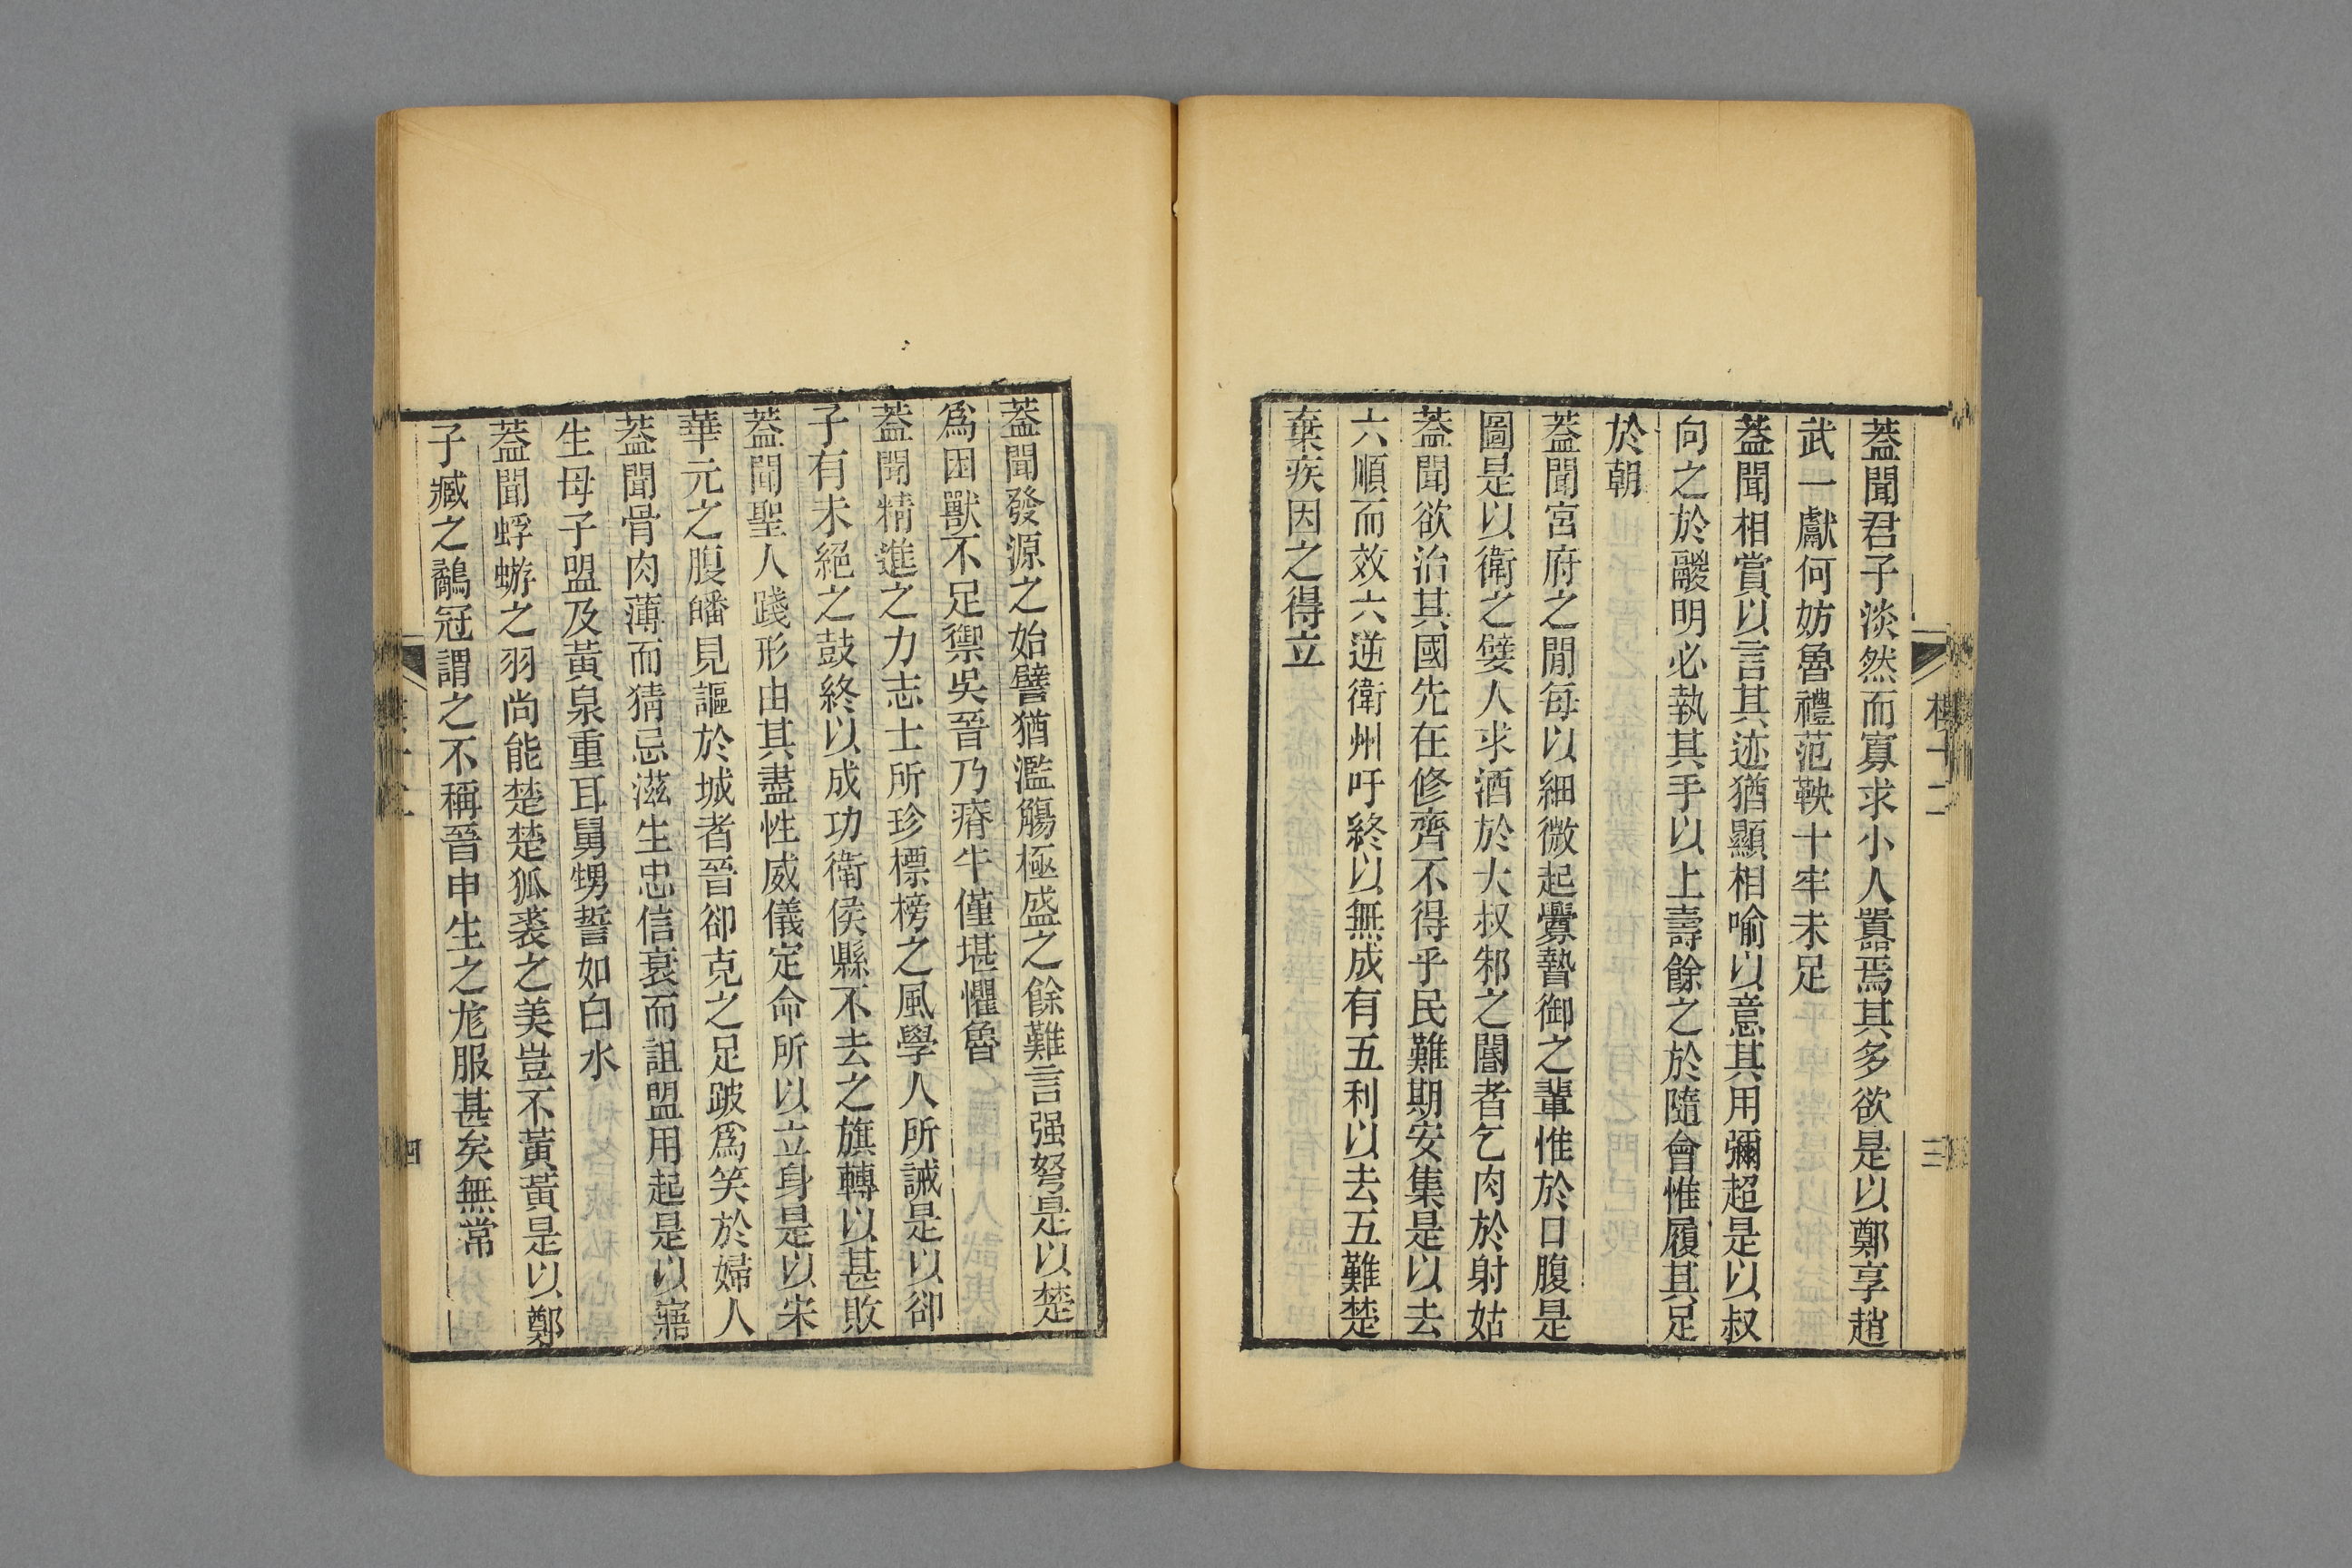 蓋聞君子淡然而寡求小人囂焉其多欲是以鄭享趙
武一獻何妨魯禮范鞅十牢未足
蓋聞相賞以言其迹猶顯相喻以意其用彌超是以叔
向之於鬷明必執其手以上壽餘之於隨會惟履其足
於朝
蓋聞宮府之閒每以細微起釁暬御之輩惟於口腹是
圖是以衛之嬖人求酒於大叔邾之閽者乞肉於射姑
蓋聞欲治其國先在修齊不得乎民難期安集是以去
六順而效六逆衛州吁終以無成有五利以去五難楚
棄疾因之得立
蓋聞發源之始譬猶濫觴極盛之餘難言强弩是以楚
爲困獸不足禦吳晉乃瘠牛僅堪懼魯
蓋聞精進之力志士所珍標榜之風學人所誡是以卻
子有未絕之鼓終以成功衛侯縣不去之旗轉以甚敗
蓋聞聖人踐形由其盡性威儀定命所以立身是以宋
華元之腹皤見謳於城者晉卻克之足跛爲笑於婦人
蓋聞骨肉薄而猜忌滋生忠信衰而詛盟用起是以寤
生母子盟及黃泉重耳舅甥誓如白水
蓋聞蜉蝣之羽尚能楚楚狐裘之美豈不黃黃是以鄭
子臧之鷸冠謂之不稱晉申生之尨服甚矣無常
十二
三
四